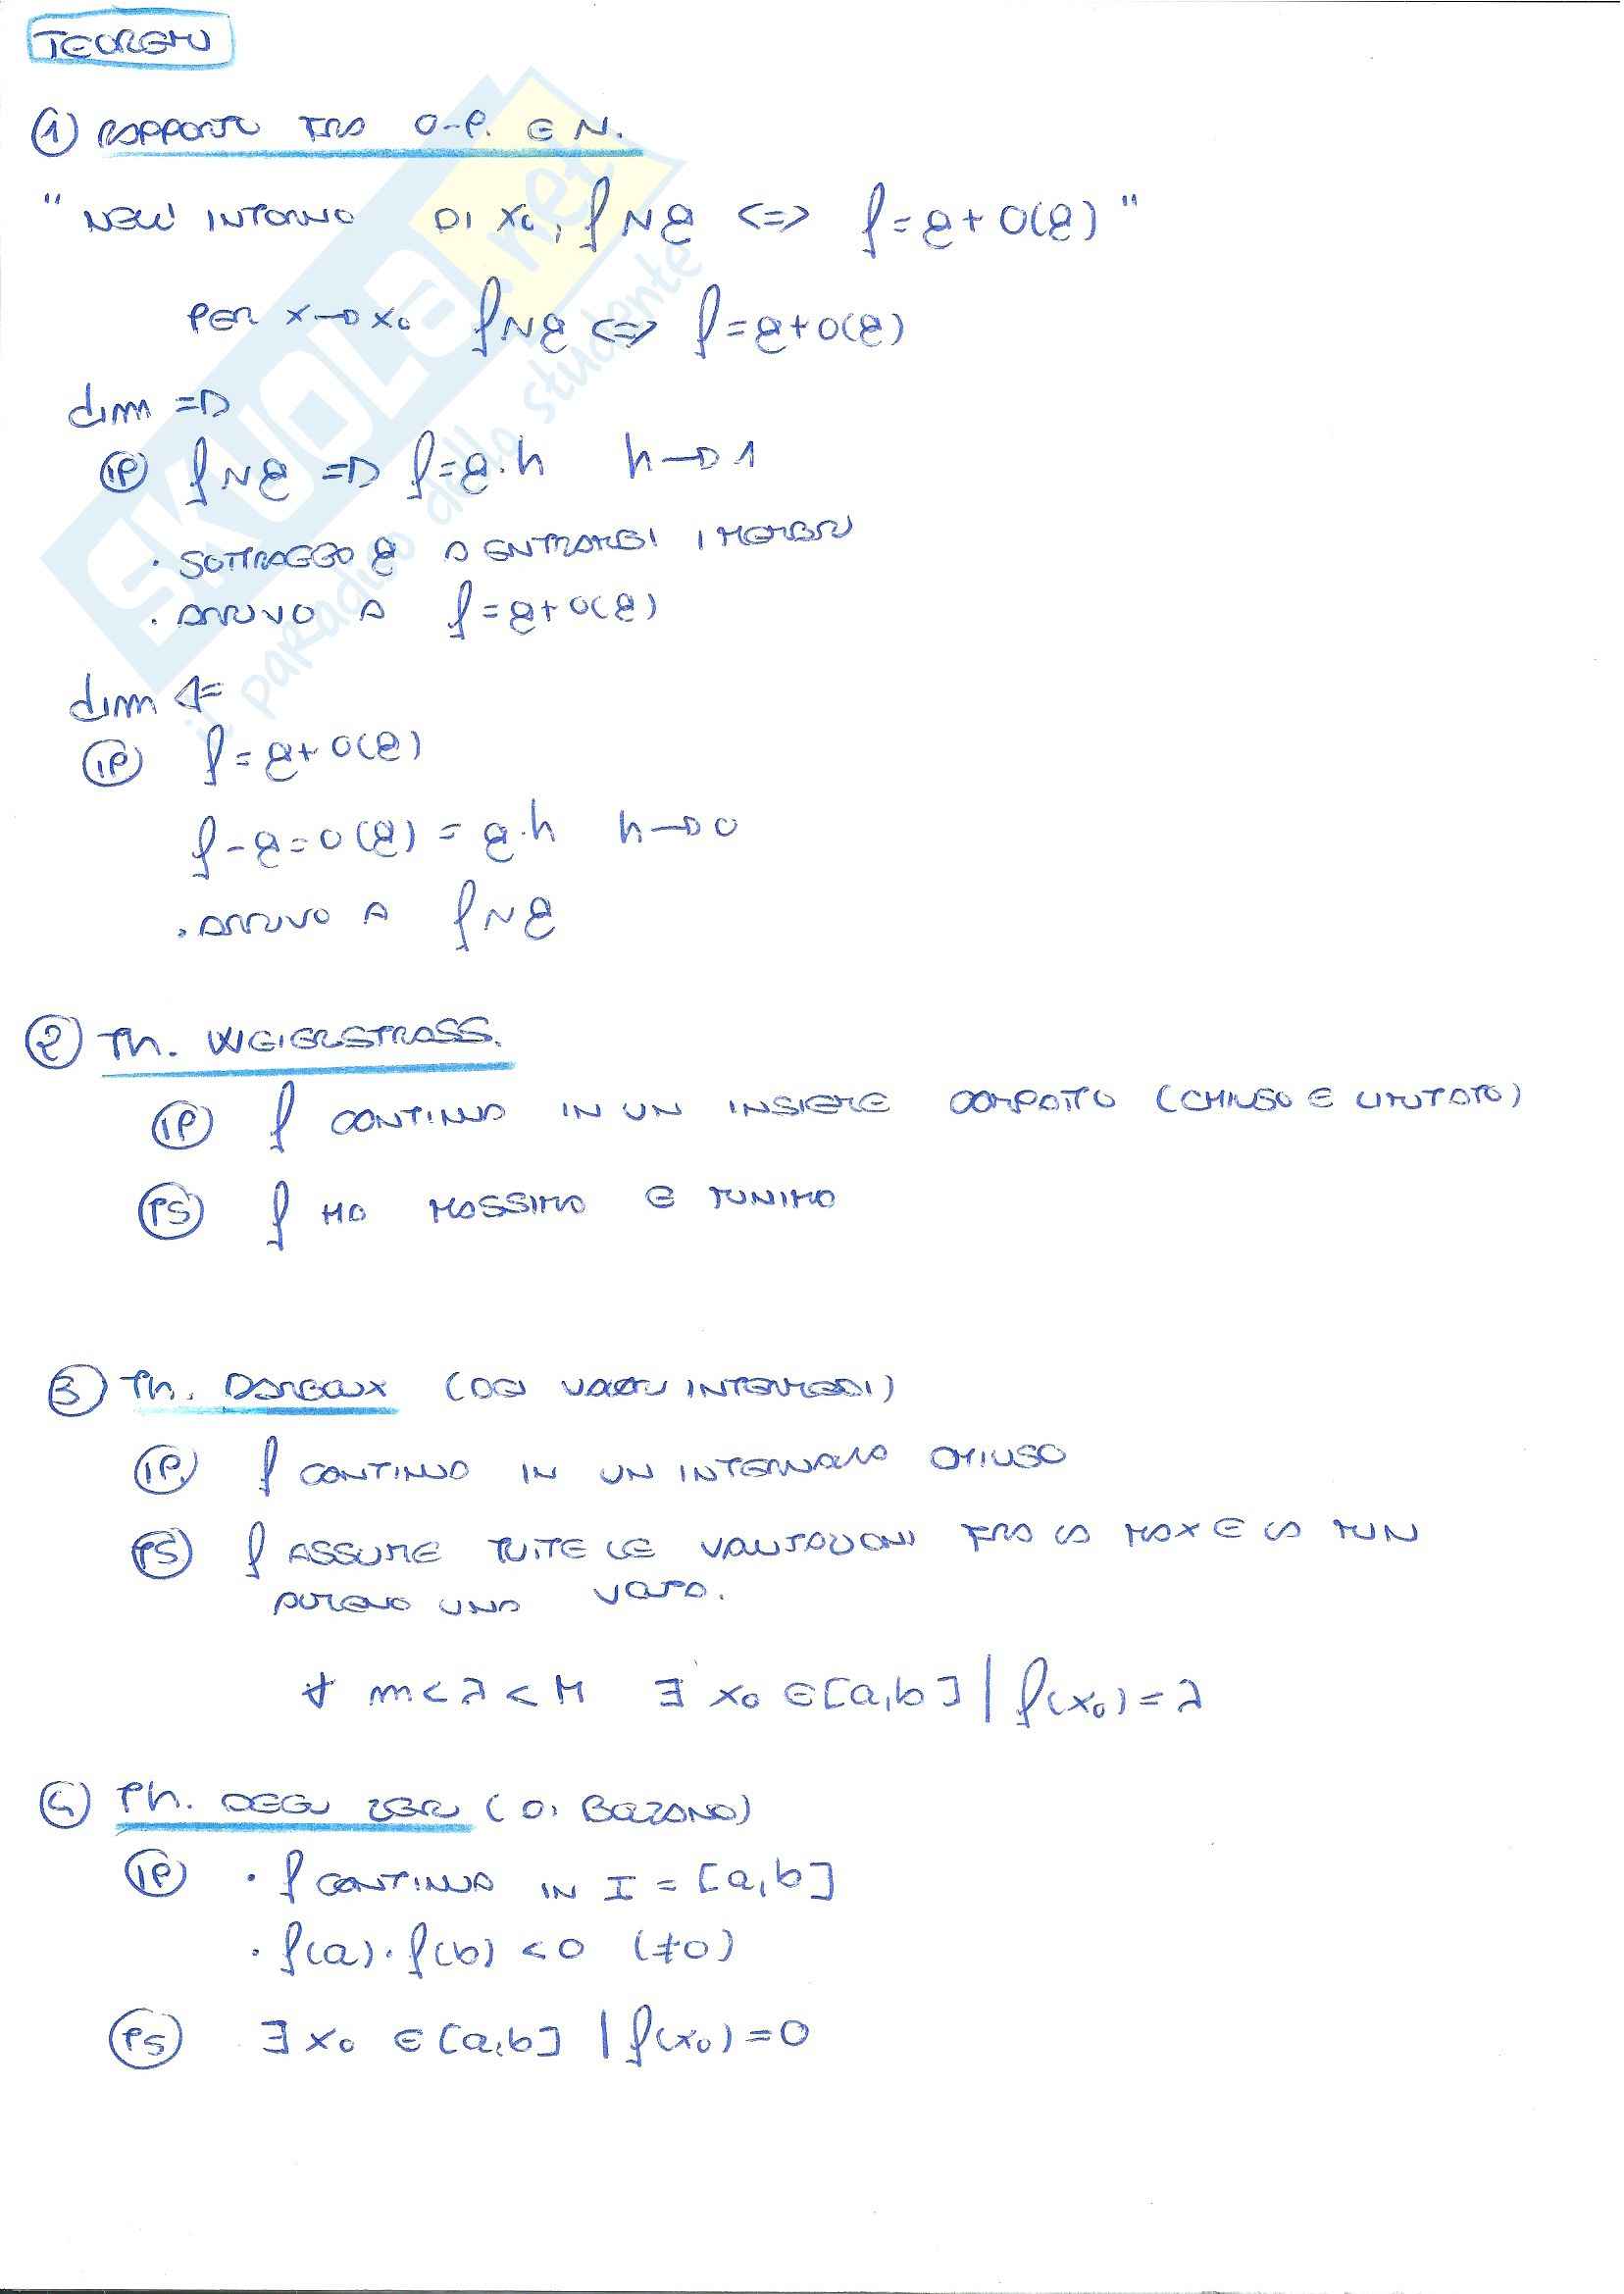 TEOREMI
① RAPPORTO TRA O-P. E ~.
"NELL' INTORNO DI x₀, f ~ g <=> f = g + o(g)"
PER x→x₀ f ~ g <=> f = g + o(g)
dim =>
IP f ~ g => f = g·h h→1
· SOTTRAGGO g A ENTRAMBI I MEMBRI
· ARRIVO A f = g + o(g)
dim <=
IP f = g + o(g)
f - g = o(g) = g·h h→0
· ARRIVO A f ~ g
② Th. WEIERSTRASS.
IP f CONTINUA IN UN INSIEME COMPATTO (CHIUSO E LIMITATO)
TS f HA MASSIMO E MINIMO
③ Th. DARBOUX (DEI VALORI INTERMEDI)
IP. f CONTINUA IN UN INTERVALLO CHIUSO
TS f ASSUME TUTTE LE VALUTAZIONI FRA IL MAX E IL MIN
ALMENO UNA VOLTA.
∀ m < λ < M ∃ x₀ ∈ [a,b] | f(x₀) = λ
④ Th. DEGLI ZERI (DI BOLZANO)
IP · f CONTINUA IN I = [a,b]
· f(a)·f(b) < 0 (≠0)
TS ∃ x₀ ∈ [a,b] | f(x₀) = 0
SKUOLA.net
il paradiso dello studente